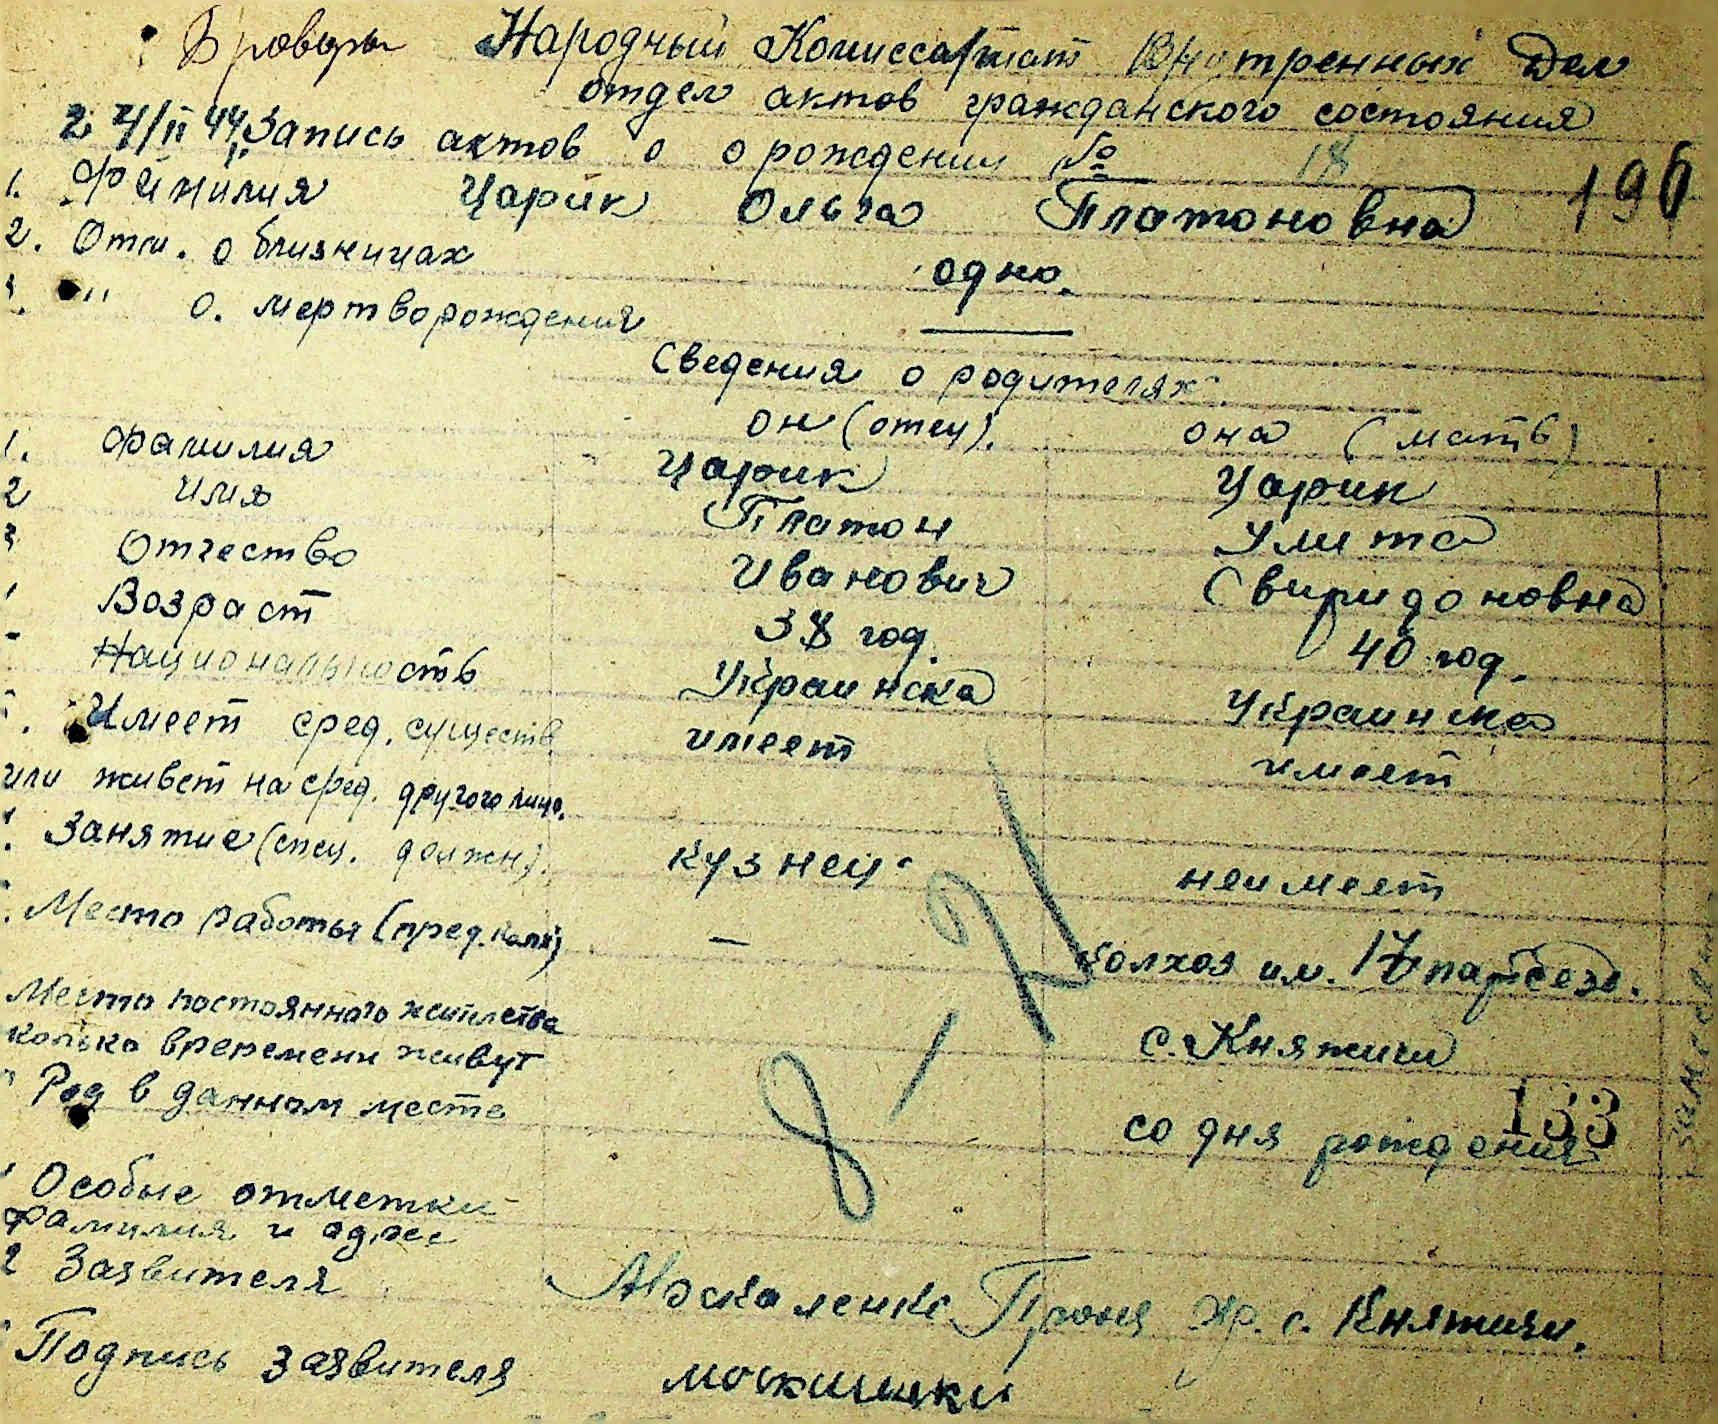 Бровары Народный Комиссариат Внутренных Дел
отдел актов гражданского состояния
24/II 44 Запись актов о о рождении № 18
196
1. Фамилия Царик Ольга Платоновна
2. Отм. о близничах одно.
" о. мертворождения —
Сведения о родителях.
он (отец). она (мать)
1. Фамилия Царик Царик
2 имя Платон Улита
3 Отчество Иванович Свиридоновна
Возраст 38 год. 40 год.
Национальность Украинска Украинска
Имеет сред. существ. имеет имеет
или живет на сред. другого лица.
Занятие (спец. должн). кузнец. неимеет
Место работы (пред. колх) — колхоз им. 17 партсезо.
Место постоянного жительства с. Княжичи
колько времени живут
Род в данном месте со дня рождения
133
8-21
Особые отметки
Фамилия и адрес
2 Заявителя Москаленко Проня Хр. с. Княжичи.
Подпись заявителя